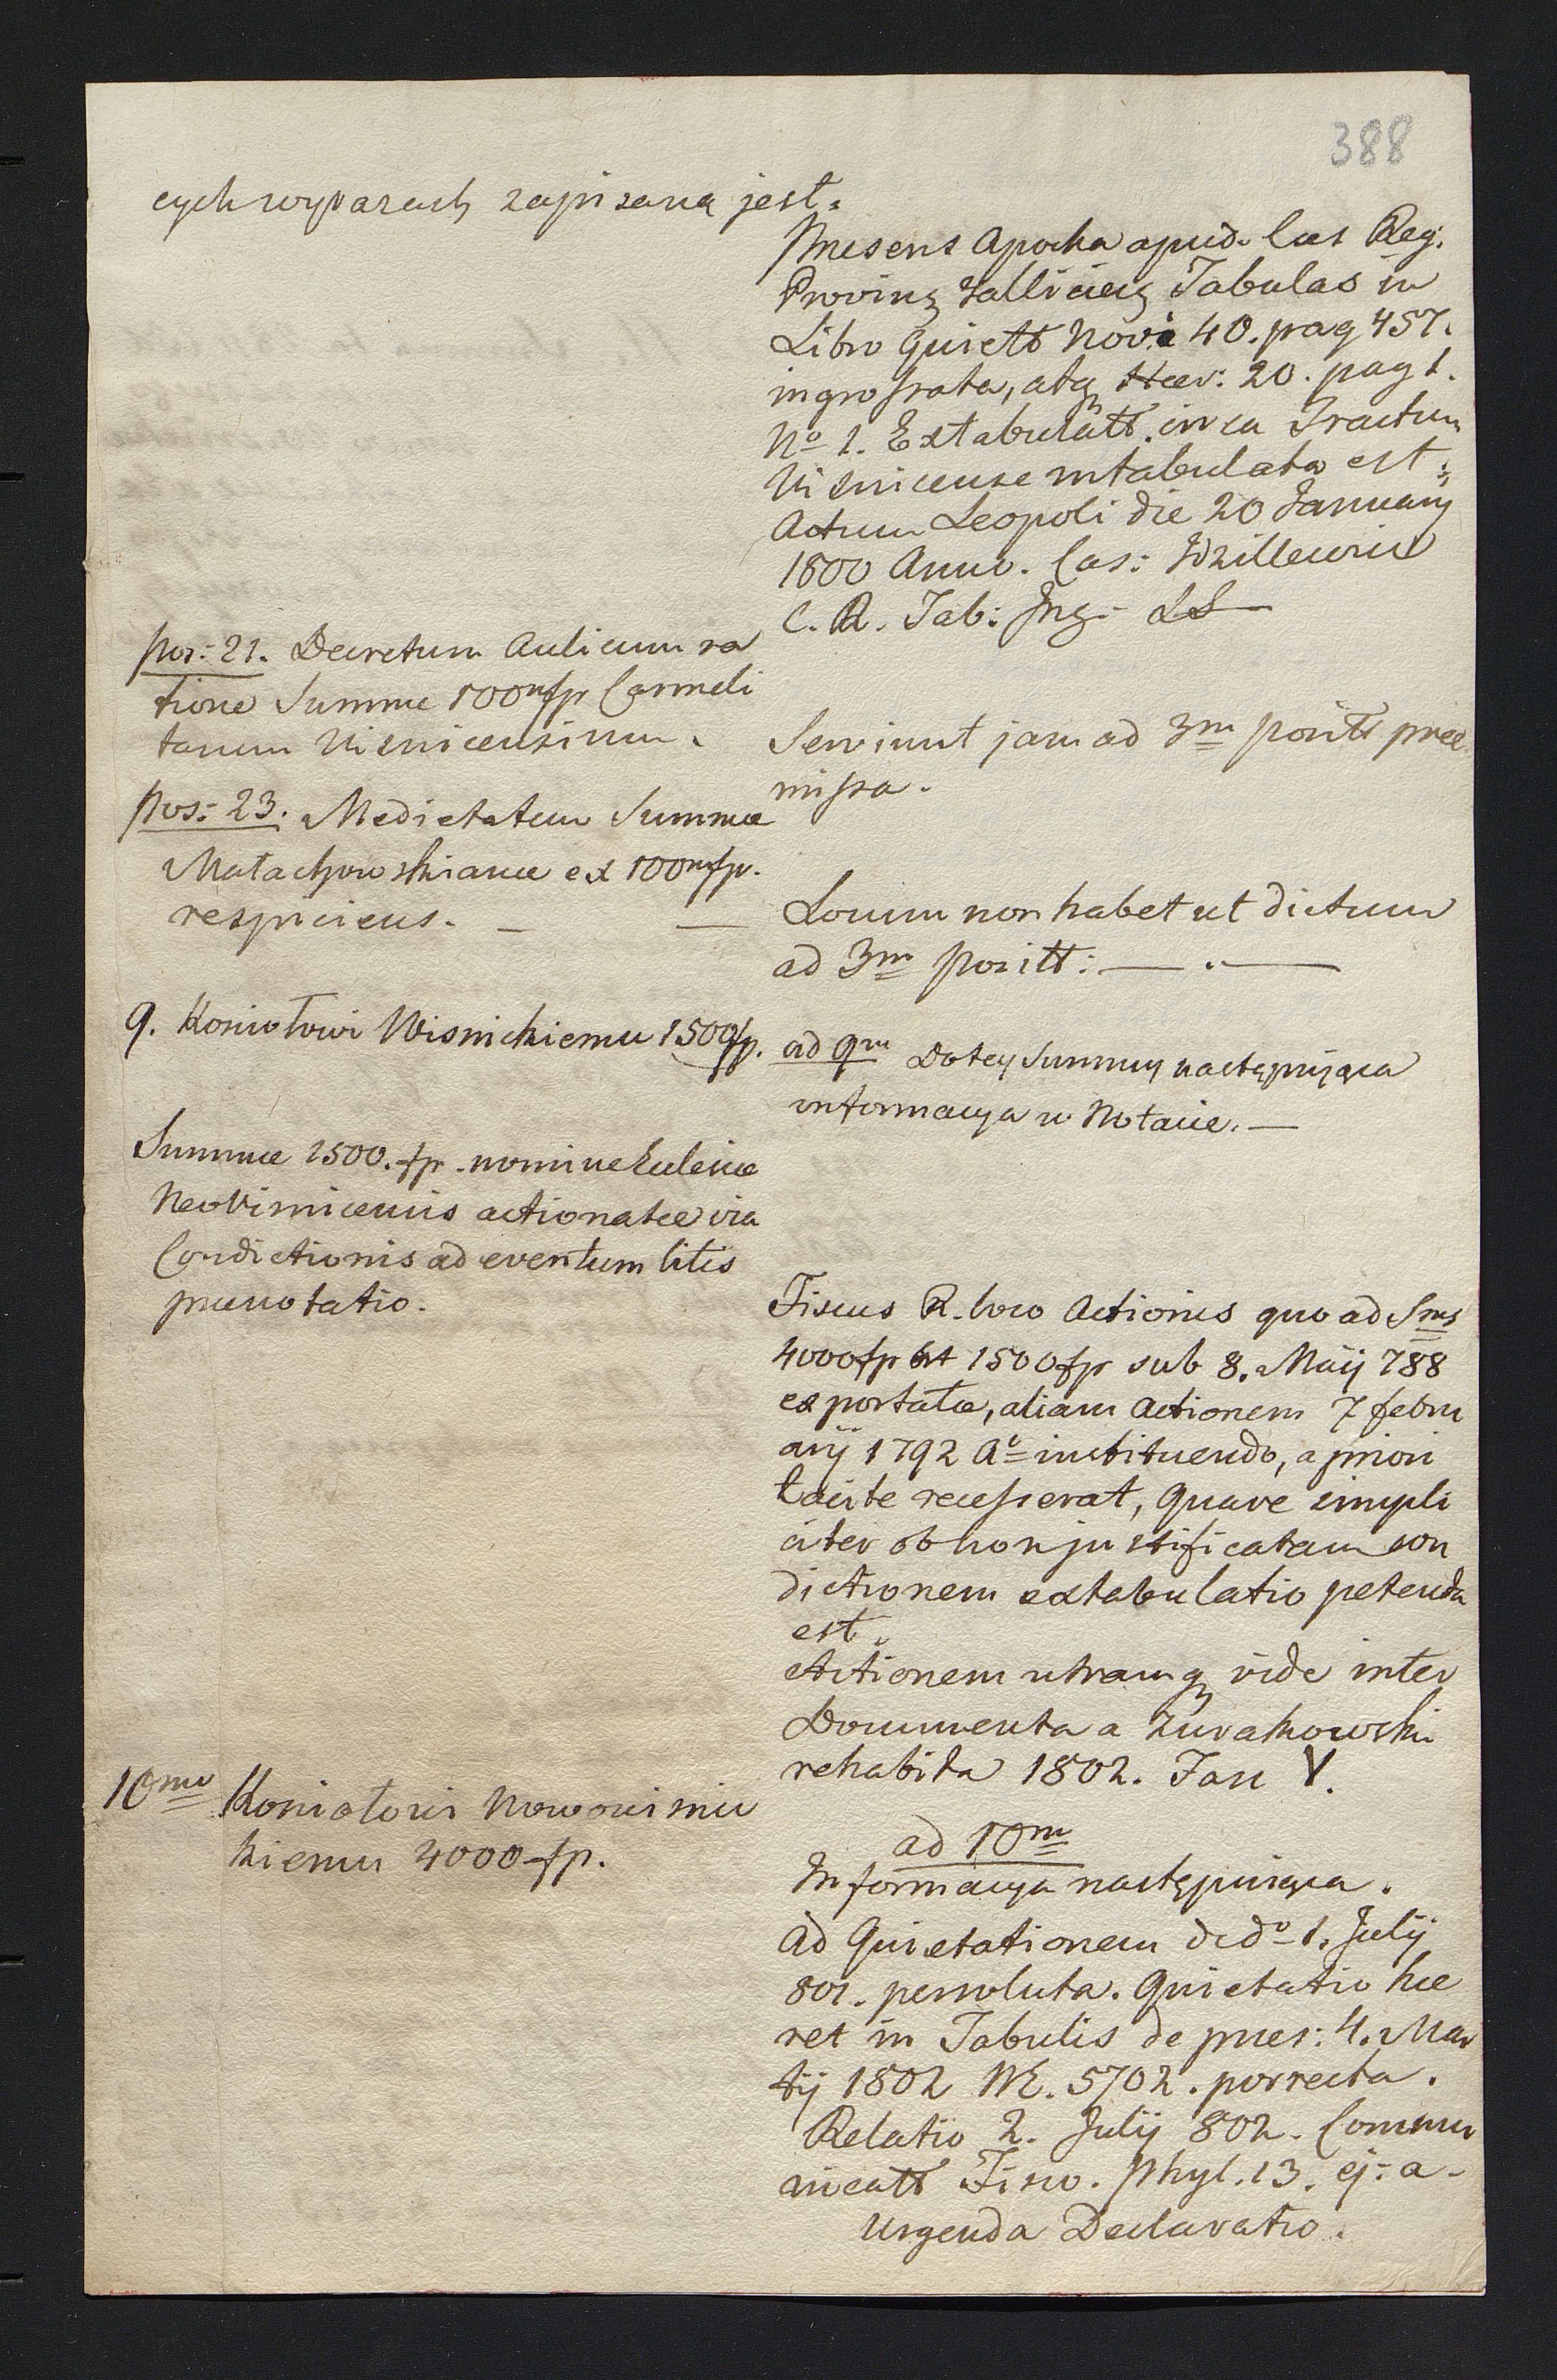 388
cych wyrazach zapisana jest.
Præsens Apocha apud. Cæs Reg.
Provinç Galliciens Tabulas in
Libro Quiett Novo 40. pag 457.
ingrossata, atq Hær: 20. pag 1.
No 1. Extabulatt. in ea Tractum
Visnicense intabulata est.
Actum Leopoli die 20 January
1800 Anno. Cas: Wzillewicz
C. R. Tab: Ing: LS
pos: 21. Decretum Aulicum ra
tione Summæ 100m fp Carmeli
tarum Visnicensium.
Serviunt jam ad 3m positt præ
missa.
pos: 23. Medietatem Summæ
Małachowskianæ ex 100m fp.
respiciens. —
Locum non habet ut dictum
ad 3m positt: — . —
9. Kościołowi Wisnickiemu 1500 fp.
ad 9m Do tey Summy następuiąca
informacya w Notacie. —
Summæ 1500. fp. nomine Ecclesiæ
NeoVisnicensis actionatæ via
Condictionis ad eventum litis
prænotatio.
Fiscus R. loco Actionis quo ad Sms
4000 fp et 1500 fp sub 8. Maij 788
exportatæ, aliam Actionem 7 febru
arij 1792 Ao instituendo, a priori
tacite recesserat, Quare simpli
citer ob non justificatam con
dictionem extabulatio petenda
est.
Actionem utramq vide inter
Documenta a Zurakowski
rehabita 1802. Fasc V.
10mo Kościołowi Nowowisnic
kiemu 4000 fp.
ad 10m
Informacya następuiąca.
Ad Quietationem ddo 1. Julij
801. persoluta. Quietatio hæ
ret in Tabulis de præs: 4. Mar
tij 1802 NE. 5702. porrecta.
Relatio 2. Julij 802. Commu
nicatt Fisco. Phyl. 13. ej: a.
Urgenda Declaratio.